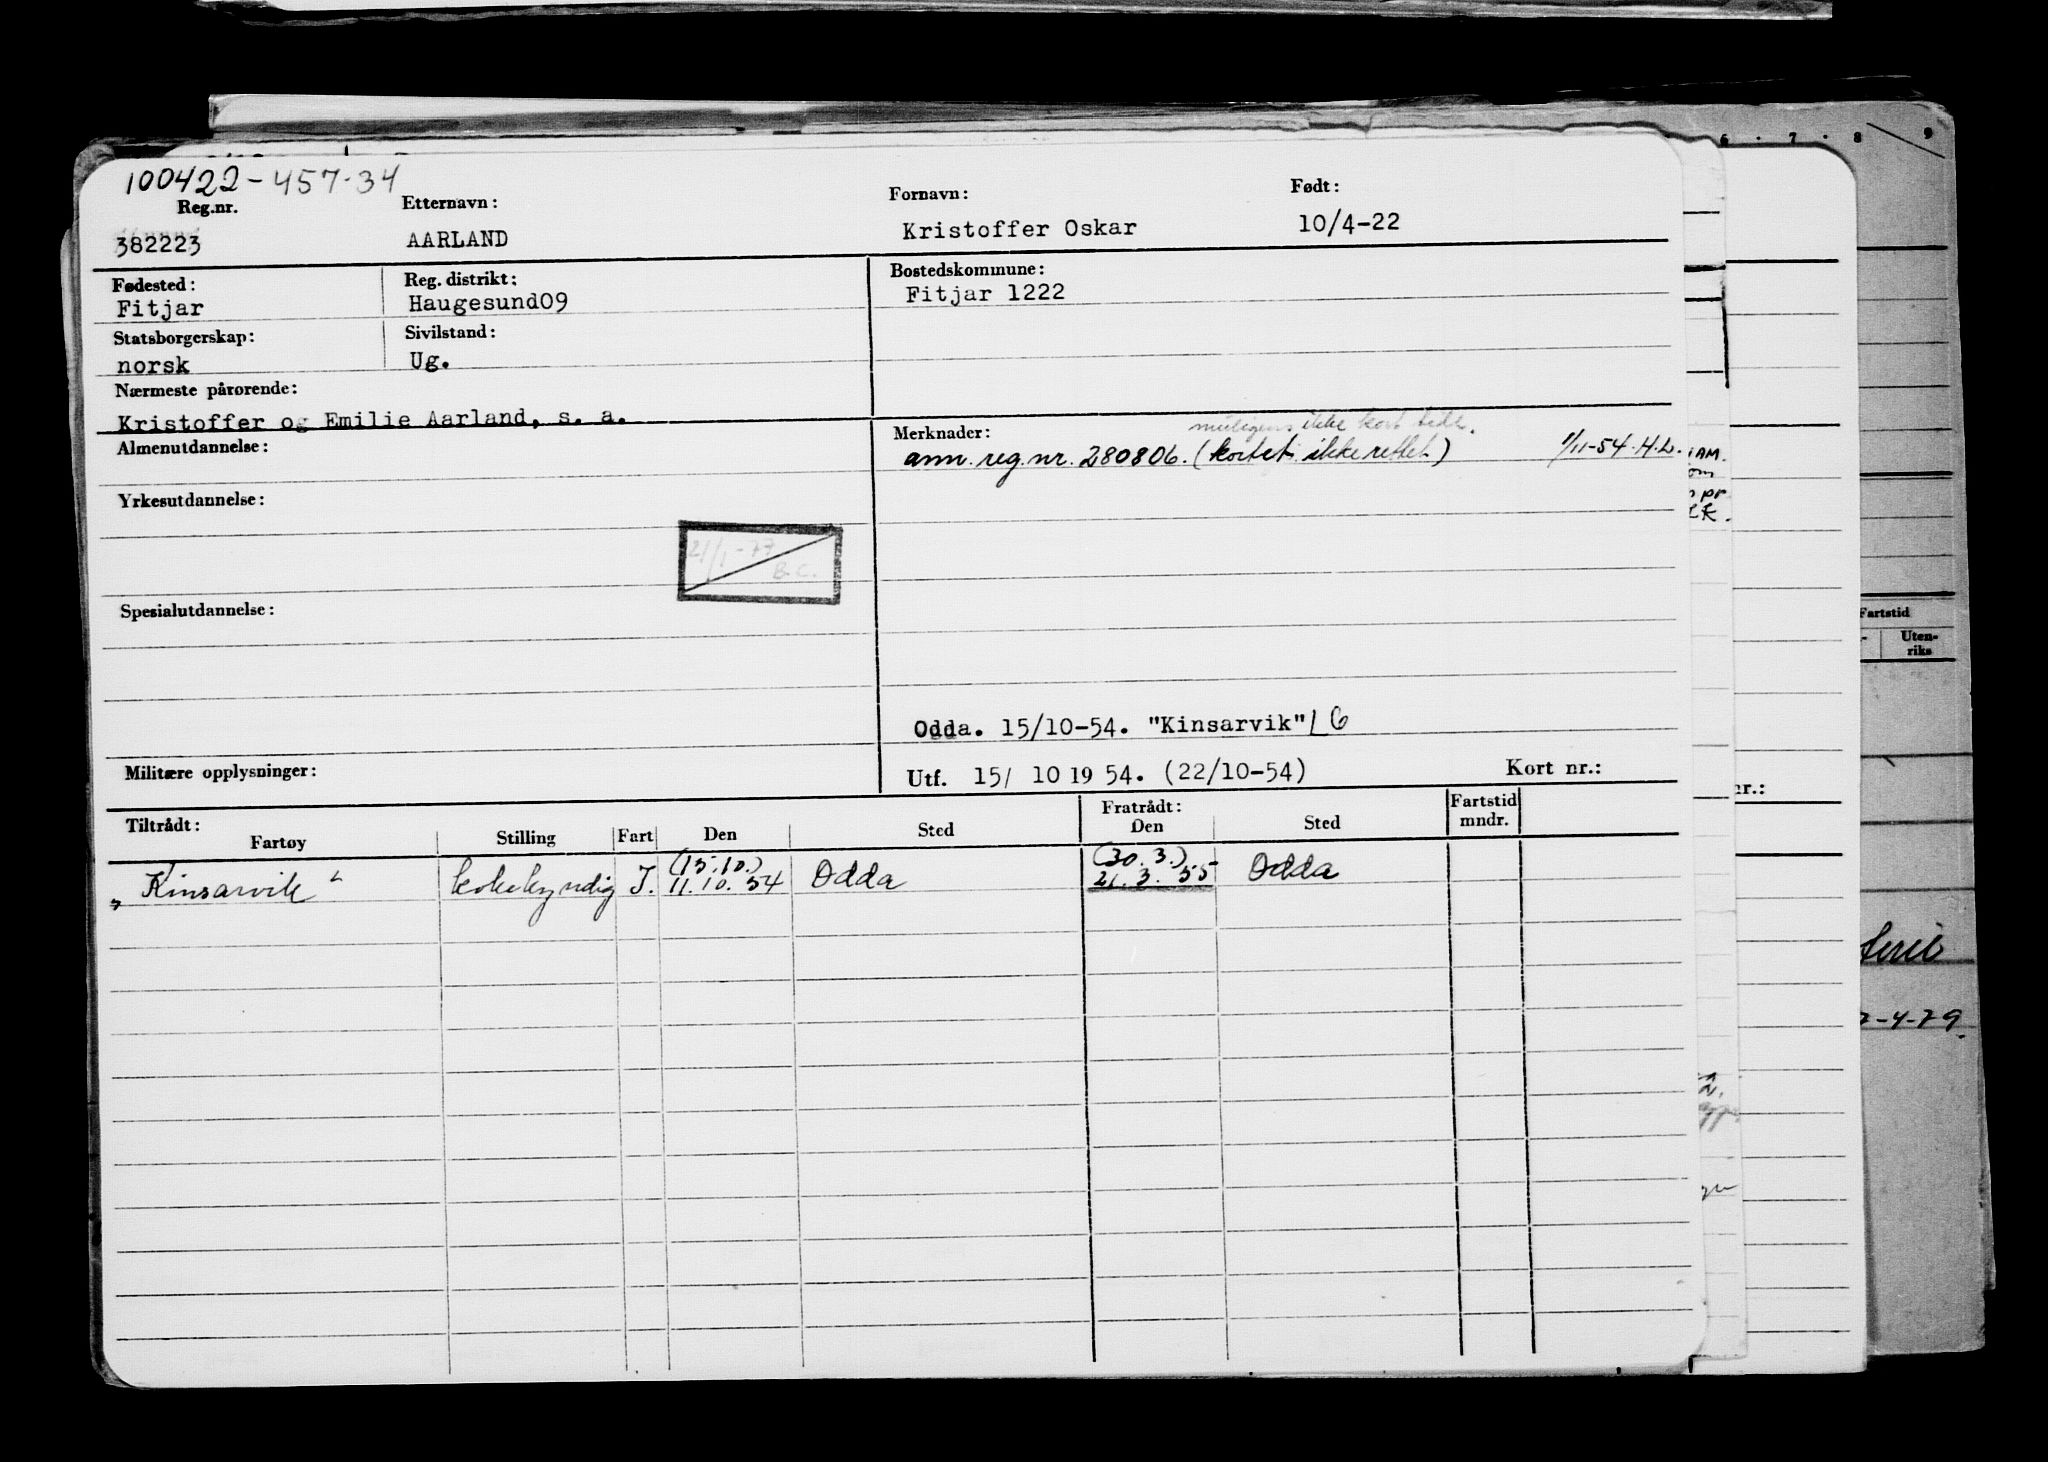 100422-457.34
Reg.nr. Etternavn: Fornavn: Født:
382223 AARLAND Kristoffer Oskar 10/4-22
Fødested: Reg. distrikt: Bostedskommune:
Fitjar Haugesund09 Fitjar 1222
Statsborgerskap: Sivilstand:
norsk Ug.
Nærmeste pårørende:
Kristoffer og Emilie Aarland, s. a.
Almenutdannelse: Merknader:
muligens ikke kort
ann. reg.nr. 280806. (kortet ikke rettet) 1/11-54. H.L.
Yrkesutdannelse:
21/1-77
B.C.
Spesialutdannelse:
Odda. 15/10-54. "Kinsarvik" L6
Militære opplysninger: Utf. 15/ 10 19 54. (22/10-54) Kort nr.:
Tiltrådt: Fratrådt: Fartstid
Fartøy Stilling Fart Den Sted Den Sted mndr.
(15.10.) (30.3.)
„Kinsarvik" kokekyndig I. 11.10.54 Odda 21.3.55 Odda
6 7 8 9
IAM.
om
pr
Fartstid
Uten-
riks
nr.:
7-4-79